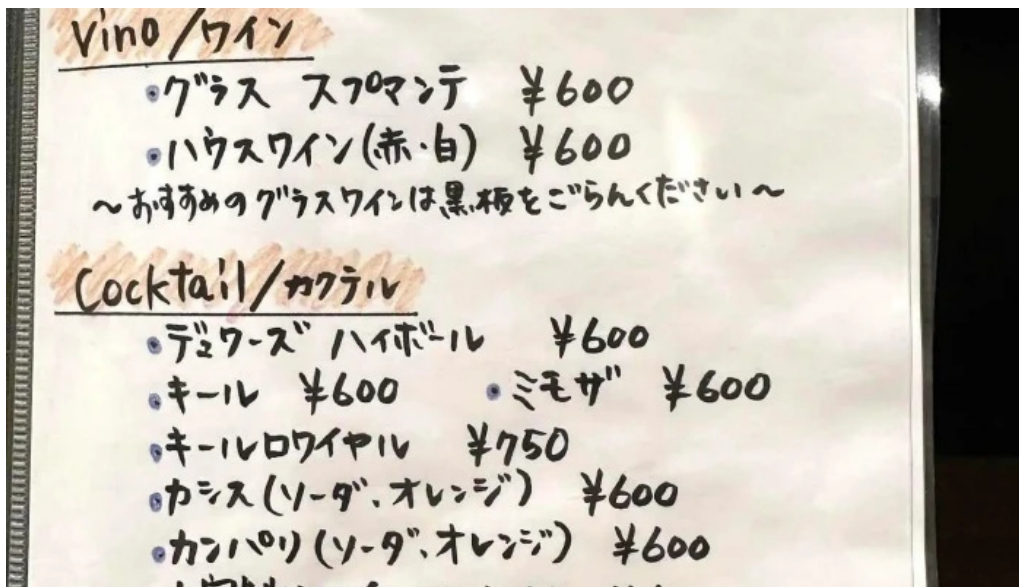 Vino/ワイン
・グラス スプマンテ ¥600
・ハウスワイン(赤・白) ¥600
～おすすめのグラスワインは黒板をごらんください～
Cocktail/カクテル
・デュワーズ ハイボール ¥600
・キール ¥600 ・ミモザ ¥600
・キールロワイヤル ¥750
・カシス(ソーダ、オレンジ) ¥600
・カンパリ(ソーダ、オレンジ) ¥600